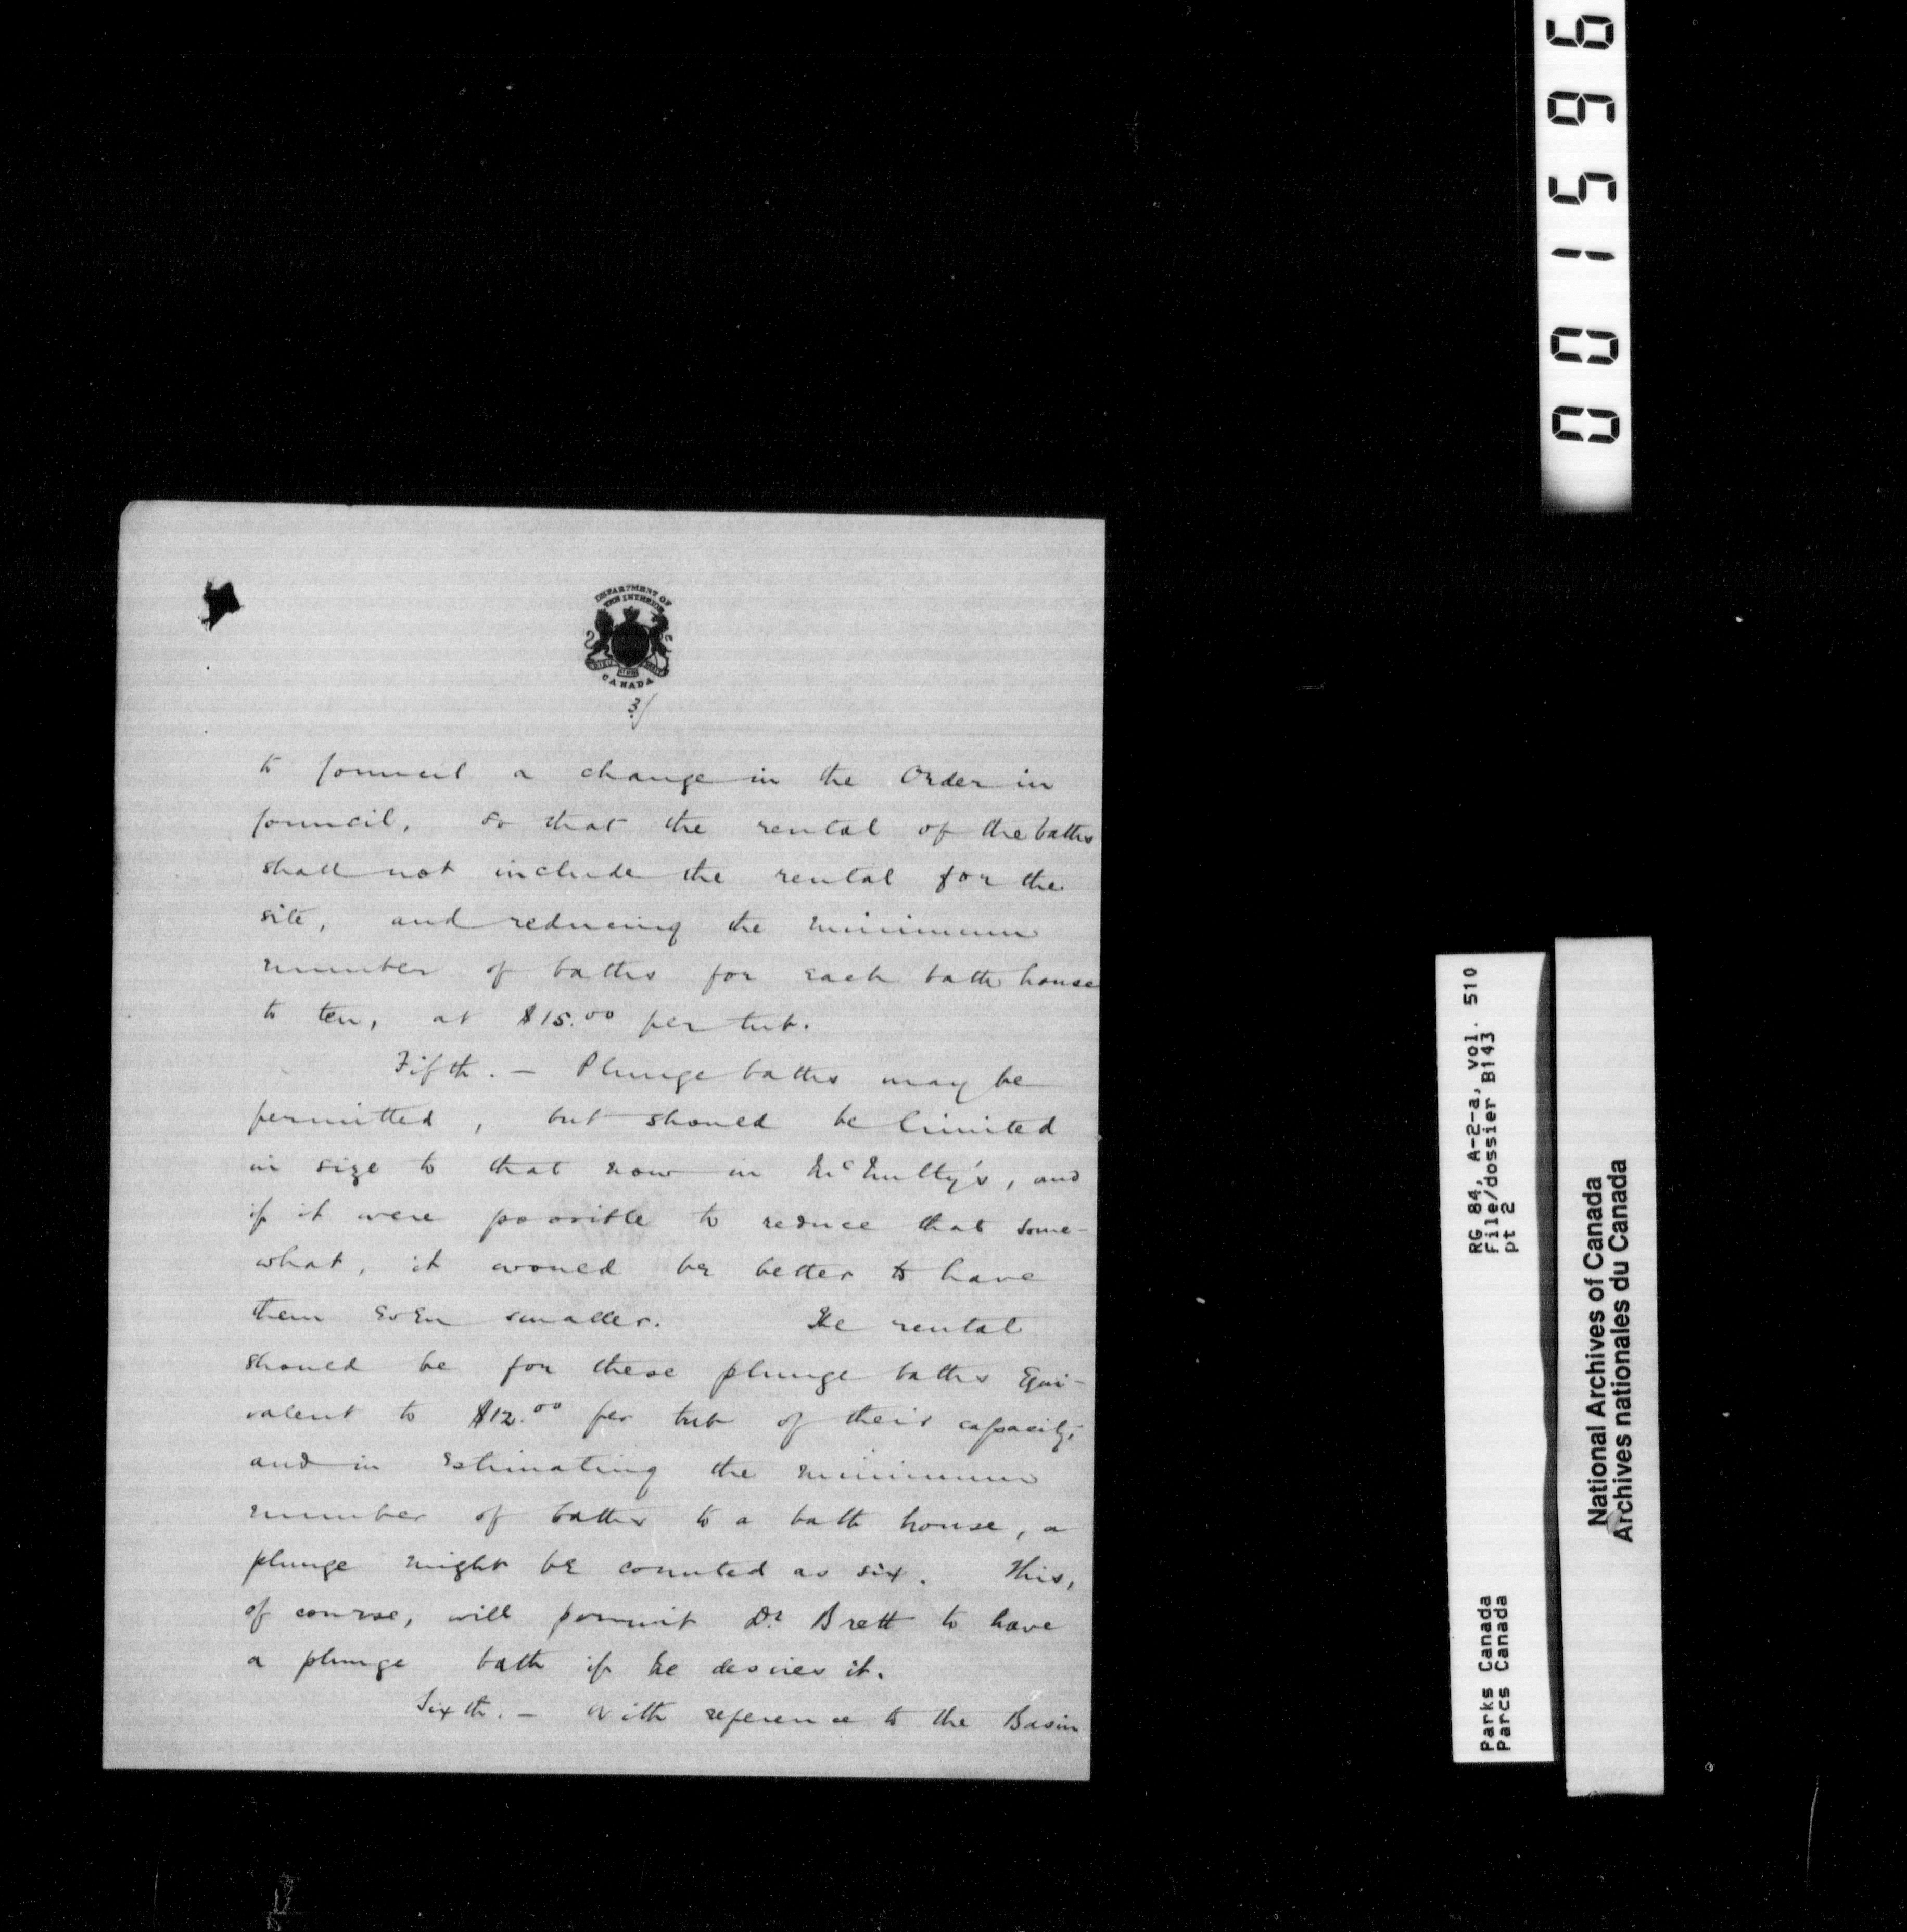 DEPARTMENT OF
THE INTERIOR
CANADA
3/
to Council a change in the Order in
Council, so that the rental of the baths
shall not include the rental for the
site, and reducing the minimum
number of baths for each bath house
to ten, at $15.00 per tub.
Fifth. — Plunge baths may be
permitted, but should be limited
in size to that now in McNulty's, and
if it were possible to reduce that some-
what, it would be better to have
them even smaller. The rental
should be for these plunge baths equi-
valent to $12.00 per tub of their capacity,
and in estimating the minimum
number of baths to a bath house, a
plunge might be counted as six. This,
of course, will permit Dr. Brett to have
a plunge bath if he desires it.
Sixth. — With reference to the Basin
001596
RG 84, A-2-a, vol. 510
File/dossier B143
pt 2
Parks Canada
Parcs Canada
National Archives of Canada
Archives nationales du Canada